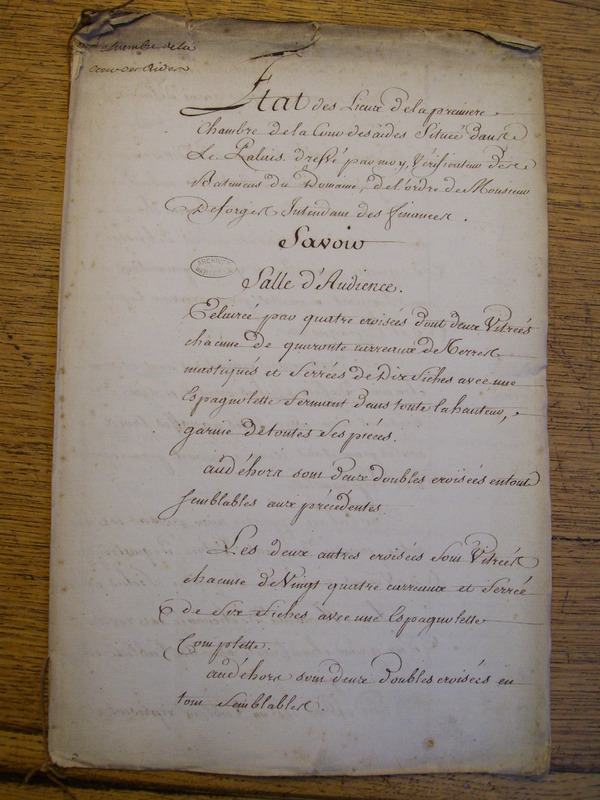 Chambre de la
Cour des Aides
Etat des Lieux de la premiere
Chambre de la Cour des aides Située dans
Le Palais. dressé par moy, Vérificateur des
Batimens du Domaine, de l'ordre de Monsieur
Deforges Intendant des finances.
Savoir
ARCHIVES
NATIONALES
Salle d'Audience.
Eclairée par quatre croisées dont deux Vitrées
chacune de quarante carreaux de Verres
mastiqués et ferrées de Dix fiches avec une
Espagnolette fermant dans toute la hauteur,
garnie de toutes ses piéces.
audéhors sont deux doubles croisées entout
semblables aux précédentes.
Les deux autres croisées sont Vitrées
chacune de Vingt quatre carreaux et ferrée
de six fiches avec une Espagnolette
Complette.
audéhors sont deux doubles croisées en
tout semblables.